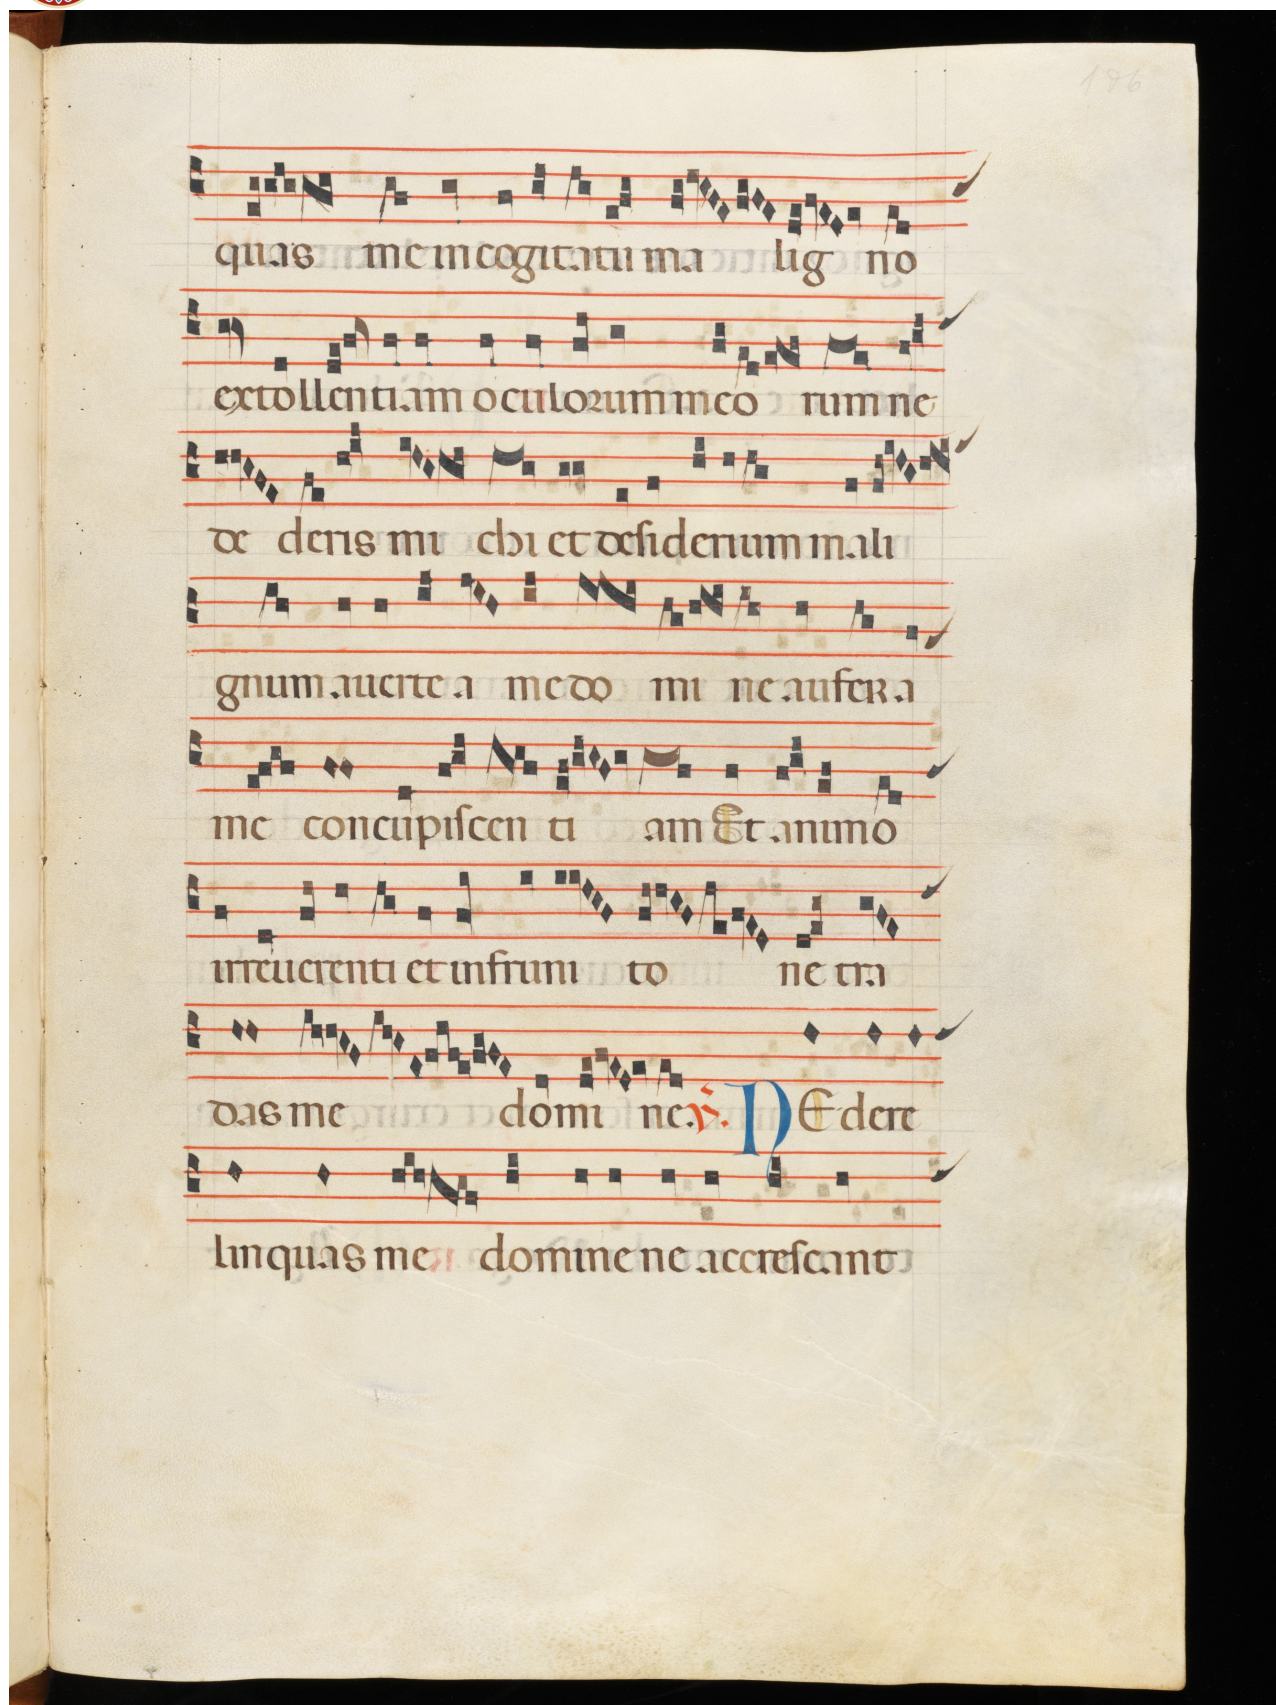 186
quas me in cogitatu ma lig no
extollentiam oculorum meo rum ne
de deris mi chi et desiderium mali
gnum auerte a me do mi ne aufer a
me concupiscen ti am Et animo
irreuerenti et infruni to ne tra
das me domi ne. V. NE dere
linquas me domine ne accrescant